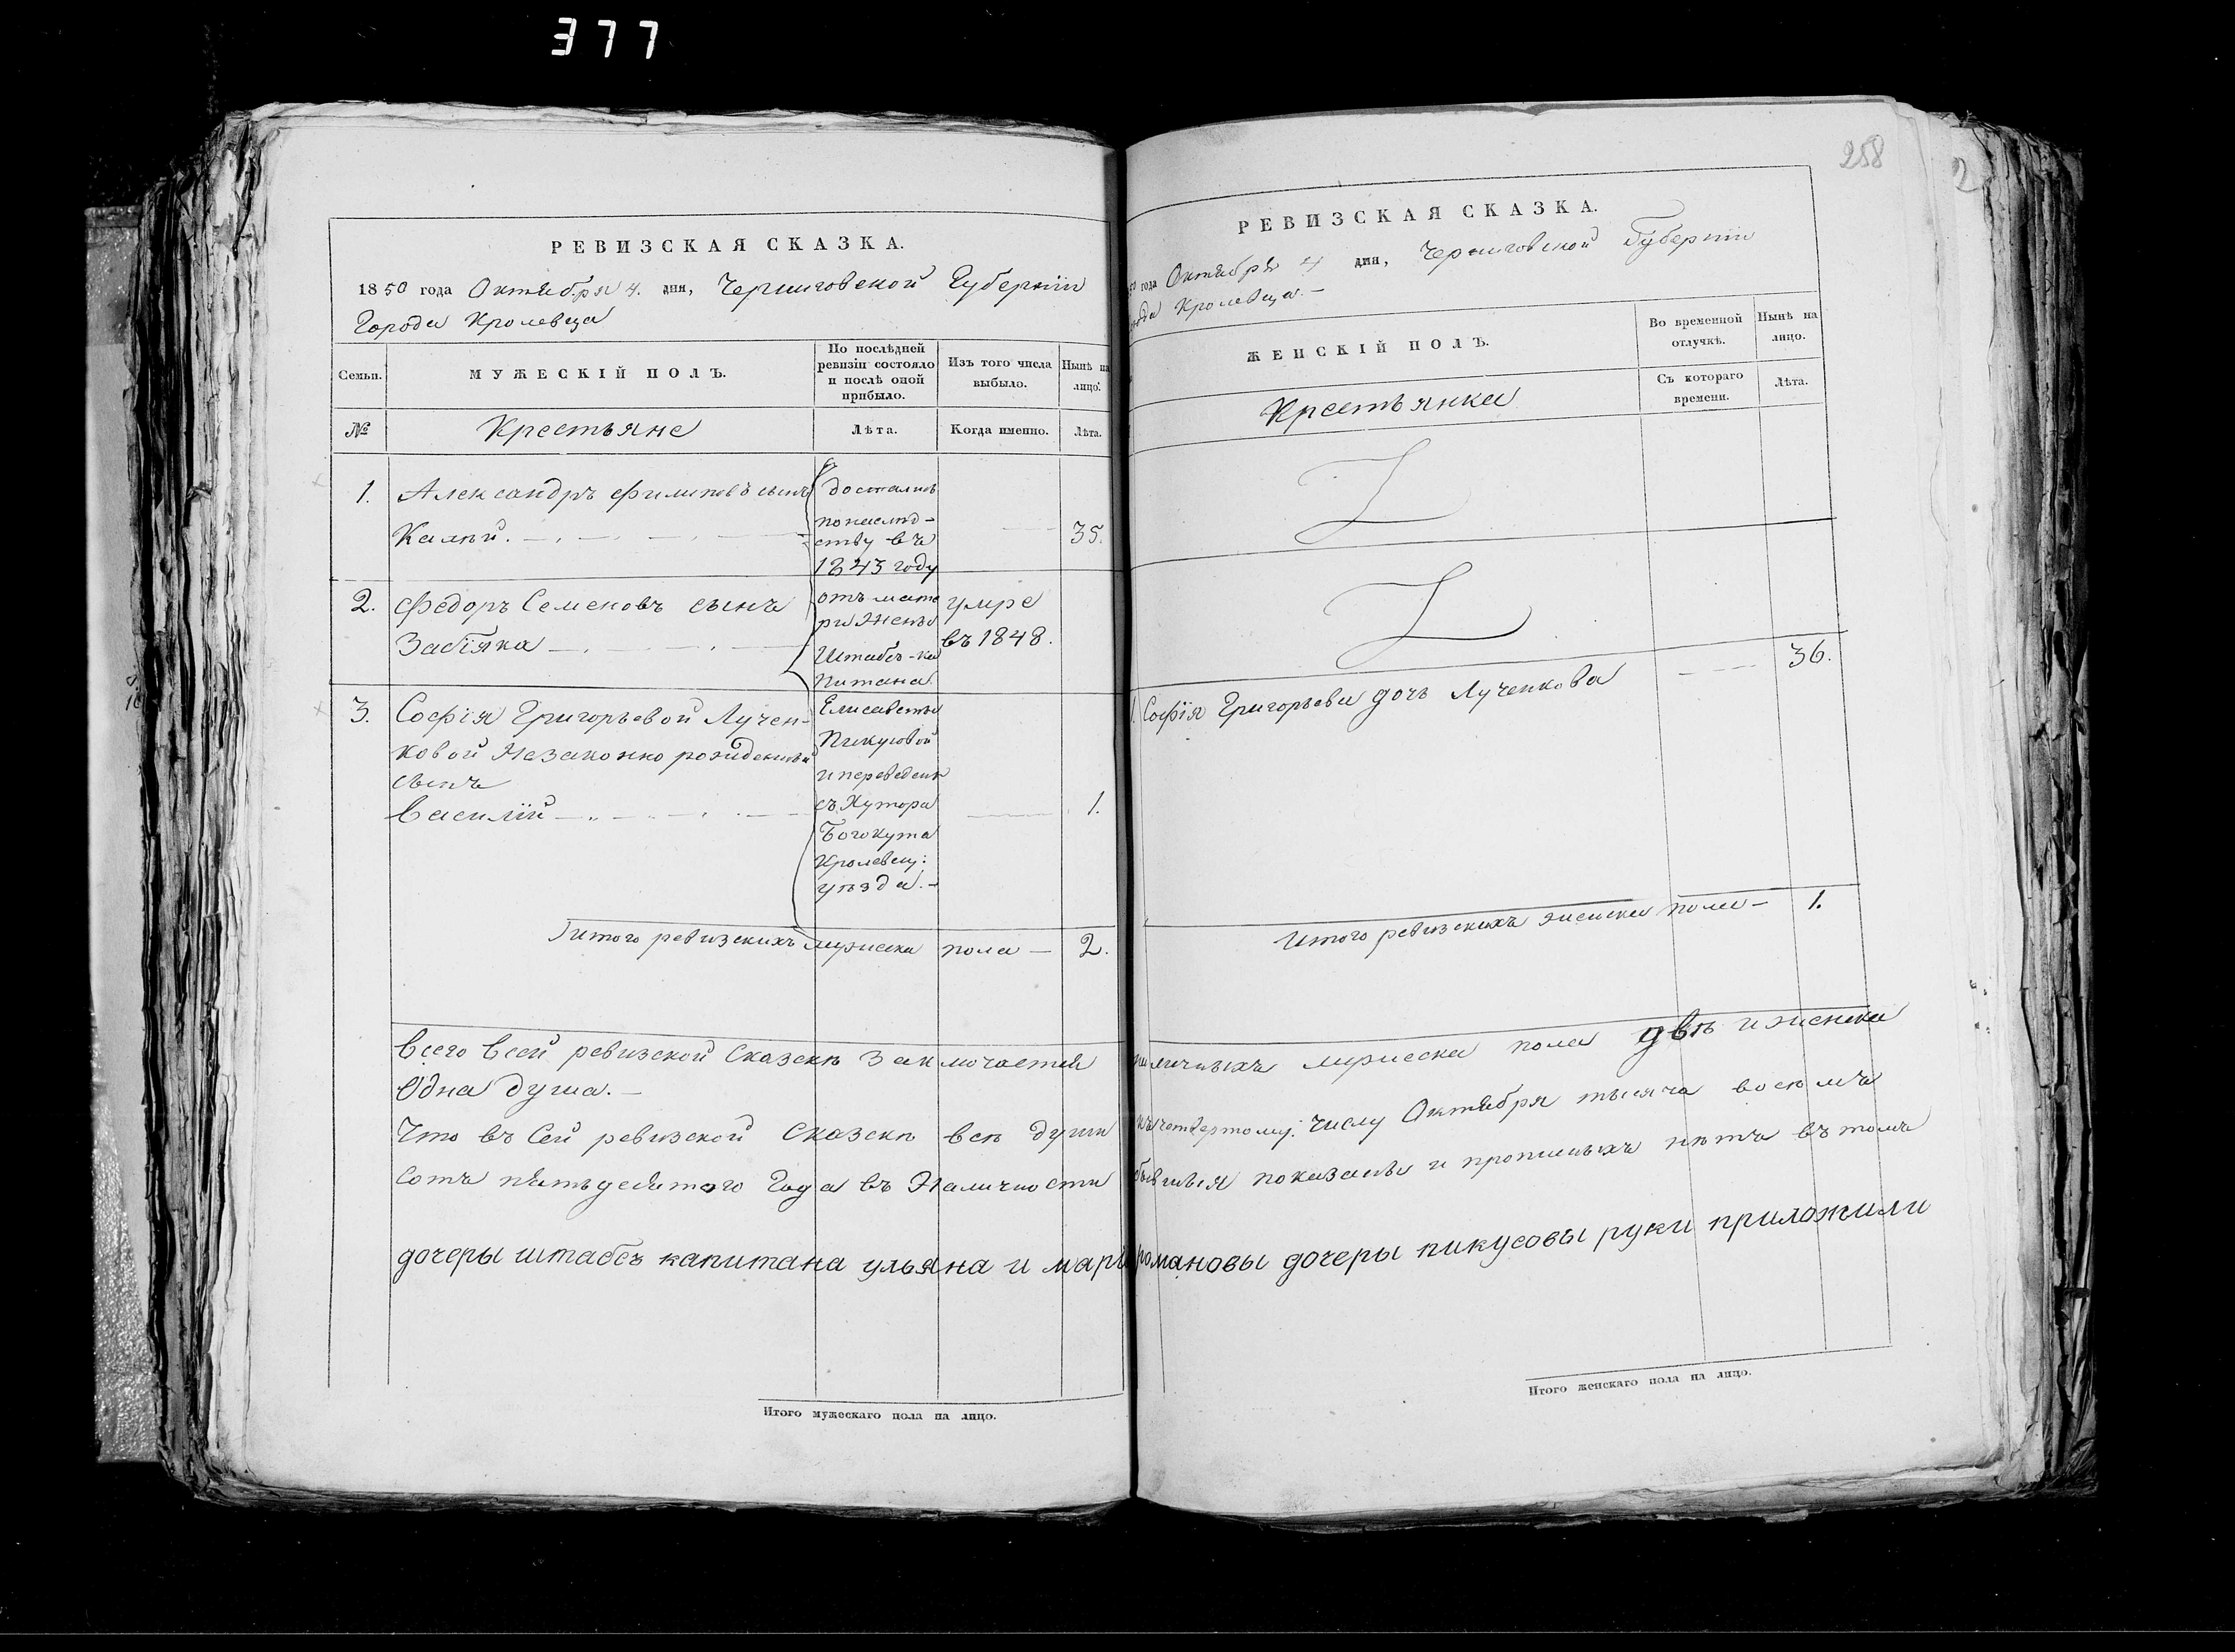 377
РЕВИЗСКАЯ СКАЗКА.
1850 года Октября 4. дня, Черниговской Губернии
Города Кролевца
Семьи.
МУЖЕСКІЙ ПОЛЪ.
По послѣдней
ревизіи состояло
и послѣ оной
прибыло.
Изъ того числа
выбыло.
Нынѣ на
лицо.
№
Крестьяне
Лѣта.
Когда именно.
Лѣта.
1. Александръ Филиповъ сынъ
35.
2. Федоръ Семеновъ сынъ
Забіяка
умре
въ 1848.
достались
по наслѣд-
ству въ
1843 году
отъ мате
ри Жены
Штабсъ-ка
питана
Елисаветы
Пикусовой
и переведены
съ Хутора
Кролевец:
уѣзда.-
3. Софія Григорьевой Лучен-
ковой Незаконно рожденный
сынъ
Василій
1.
Итого ревизскихъ мужеска пола — 2.
Всего всей ревизской Сказкѣ Заключается
Одна душа.-
Что въ Сей ревизской Сказкѣ всѣ души
сотъ пятьдесятого Года въ Наличности
дочеры штабсъ капитана ульяна и мари
Итого мужескаго пола на лицо.
258
2
РЕВИЗСКАЯ СКАЗКА.
года Октября 4 дня, Черниговской Губерніи
Кролевца.-
ЖЕНСКІЙ ПОЛЪ.
Во временной
отлучкѣ.
Нынѣ на
лицо.
Съ котораго
времени.
Лѣта.
Крестьянки
1. Софія Григорьева дочь Лученкова
36.
Итого ревизскихъ женска пола — 1.
наличныхъ мужеска пола двѣ и женска
къ четвертому: Числу Октября тысяча восемъ
показаны и прописныхъ нѣтъ въ томъ
романовы дочеры пикусовы руки приложили
Итого женскаго пола на лицо.